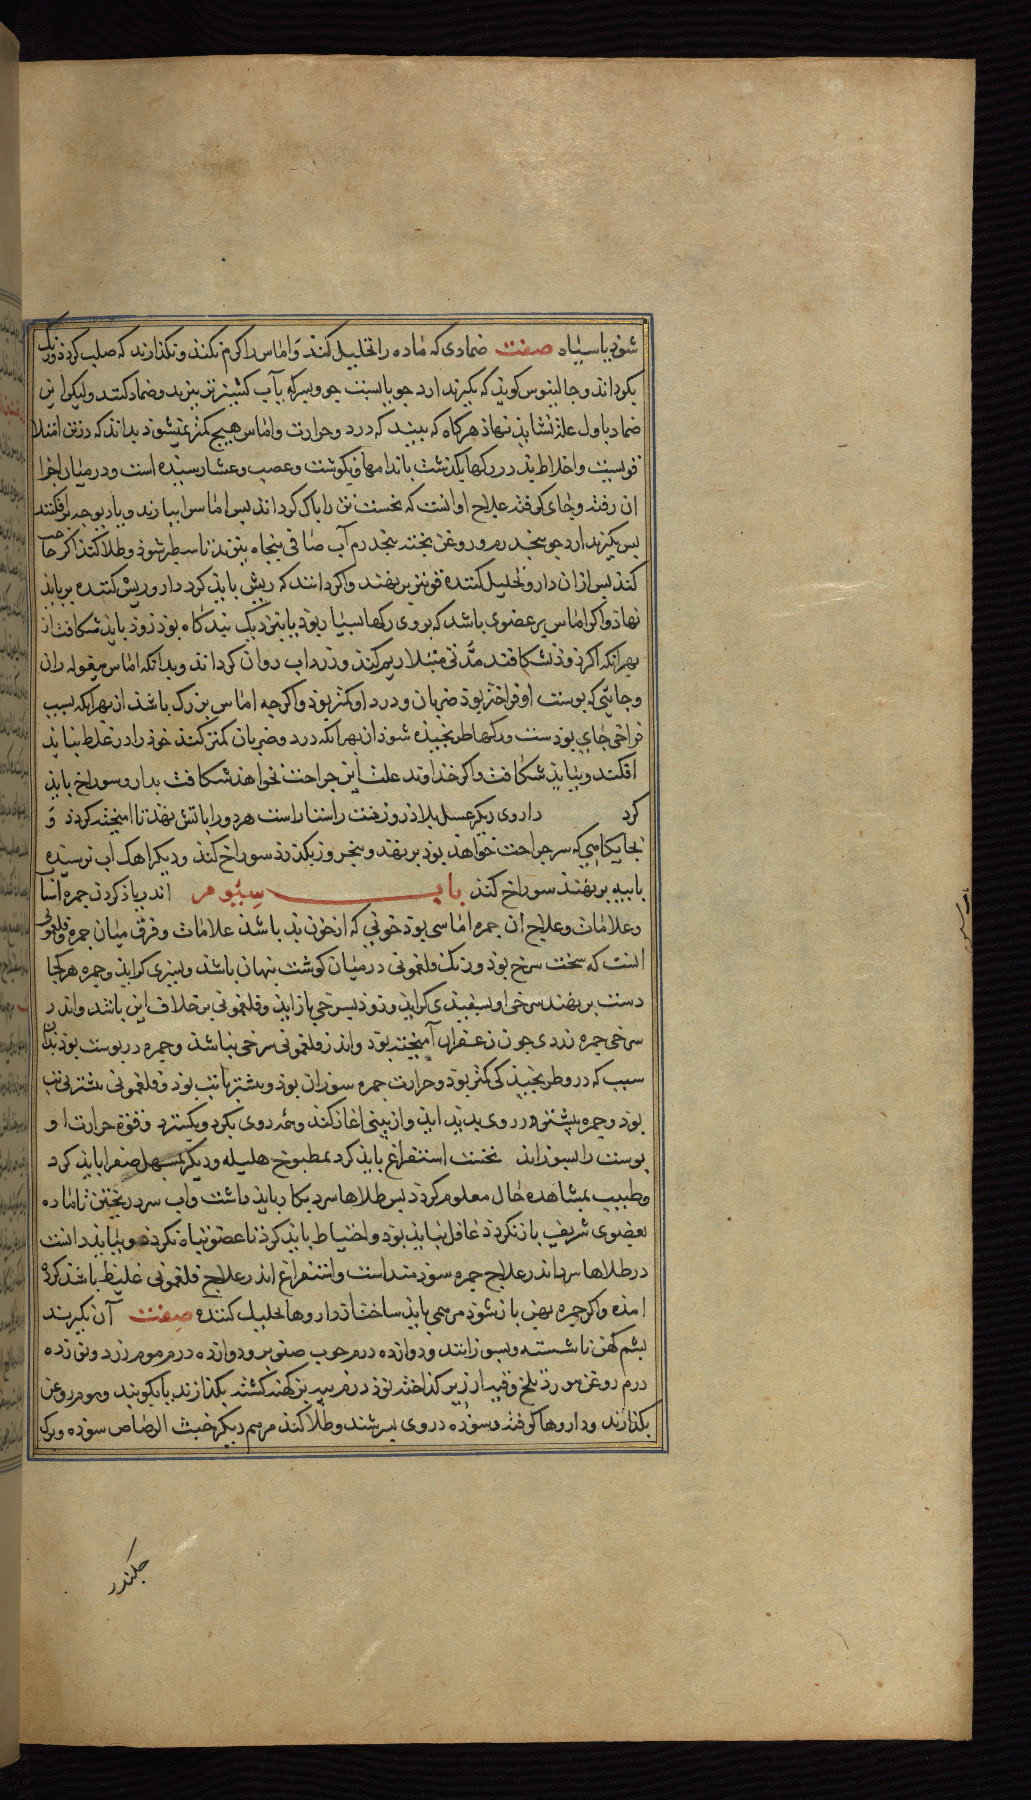 شوذ یا سیاه صفت ضمادی که ماده را تحلیل کند و اماس را کرم نکند و نکذارند که صلب کردذ و رنک
بکرداند و جالینوس کویذ که بکیرند ارد جو با سبت جو و سرکه بآب کشنیز تر بپزند و ضماد کنند ولیکن این
ضماد باول علاج نشاید نهاذ هرکاه که بینند که درد و حرارت و اماس هیچ کمتر نمیشوذ بدانند که در تن امتلا
قویست و اخلاط بذ در رکها بکذشت باندامها و بکوشت و عصب و عشا رسیده است و در میان اجزا
ان رفته و جای کرفته علاج او انست که نخست تن را پاک کردانند پس اماس را بیازند و باذ بوجه بر افکنند
پس بکیرند ارد جو پنجدرم و روغن پخته پنجدرم آب صافی پنجاه بپزند تا سطبر شوذ و طلا کنند اکر حاجب
کند پس از ان دارو تحلیل کننده قوی‌تر بر نهند و اکر دانند که ریش بایذ کرد داروی ریش کننده بر بایذ
نهاذ و اکر اماس بر عضوی باشد که بروی رکها بسیار بوذ یا بنزدیک بندکاه بوذ زوذ بایذ شکافت از
بهر آنکه اکر زوذ نشکافند مدتی مبتلا ریم کند و زرداب روان کرداند و بدانکه اماس مقوله ران
و جایی که پوست او فراختر بوذ ضربان و درد او کمتر بوذ و اکرچه اماس بزرک باشد از بهر انکه بسبب
فراخی جای پوست و رکها طرنجیده شوذ ان بهر انکه درد و ضربان کمتر کند خوذ را در غلط نبایذ
افکند و ببایذ شکافت و اکر خذاوند علت این جراحت نخواهذ شکافت بدارو سوراخ بایذ
کرد داروی دیکر عسل بلاذر و زفت راستا راست هر دو را باتش نهند تا امیخته کردذ و
بجایکاهی که سر جراحت خواهذ بوذ بر نهند و پنج روز بکذرذ سوراخ کند و دیکر اهک اب نرسیده
با پیه بر نهند سوراخ کند باب سیوم اندر یاذ کردن حمره و اسبا
و علامات و علاج ان حمره اماسی بوذ خونی که از خون بذ باشد علامات و فرق میان حمره و فلغمونی
انست که سخت سرخ بوذ و رنک فلغمونی در میان کوشت پنهان باشد و بسبزی کراید و حمره هرکجا
دست بر نهند سرخی او بسفیذی کراید و زوذ بسرخی باز آید و فلغمونی بر خلاف این باشد و اندر
سرخی حمره زردی چون زعفران آمیخته بوذ و اندر فلغمونی سرخی نباشد و حمره در پوست بوذ بدان
سبب که در و طرنجیذکی کمتر بوذ و حرارت حمره سوزان بوذ و بیشتر با تب بوذ و فلغمونی بیشتر بی تب
بوذ و حمره بیشتر در روی پدید ایذ و از بینی اغاز کند و همه روی بکیرد و بکسترد و قوة حرارت او
پوست را بسوزاند نخست استفراغ بایذ کرد بمطبوخ هلیله و دیکر بمسهل صفرا باید کرد
و طبیب بمشاهده حال معلوم کردذ پس طلاها سرد بکار بایذ داشت و اب سرد ریختن تا ماده
بعضوی شریف باز نکردذ غافل نبایذ بوذ و احتیاط بایذ کرد تا عضو تباه نکردذ و ببایذ دانست
در طلاها سرد اندر علاج حمره سوذمند است و استفراغ اندر علاج فلغمونی غلیظ باشد کرد
امذه و اکر حمره پهن باز شوذ مرهمی بایذ ساخت از داروها تحلیل کننده صفت آن بکیرند
پشم کهن ناشسته و بسوزانند و دوازده درم چوب صنوبر و دوازده درم موم زرد و نوزده
درم روغن مورد تلخ و قیه از زیر کذاخته نوذ درم پیه بز کهنه کشته بکذارند یا بکوبند و موم روغن
بکذارند و داروها کوفته و سوذه در وی سرشند و طلا کنند مرهم دیکر خبث الرصاص سوذه و برک
جکندر